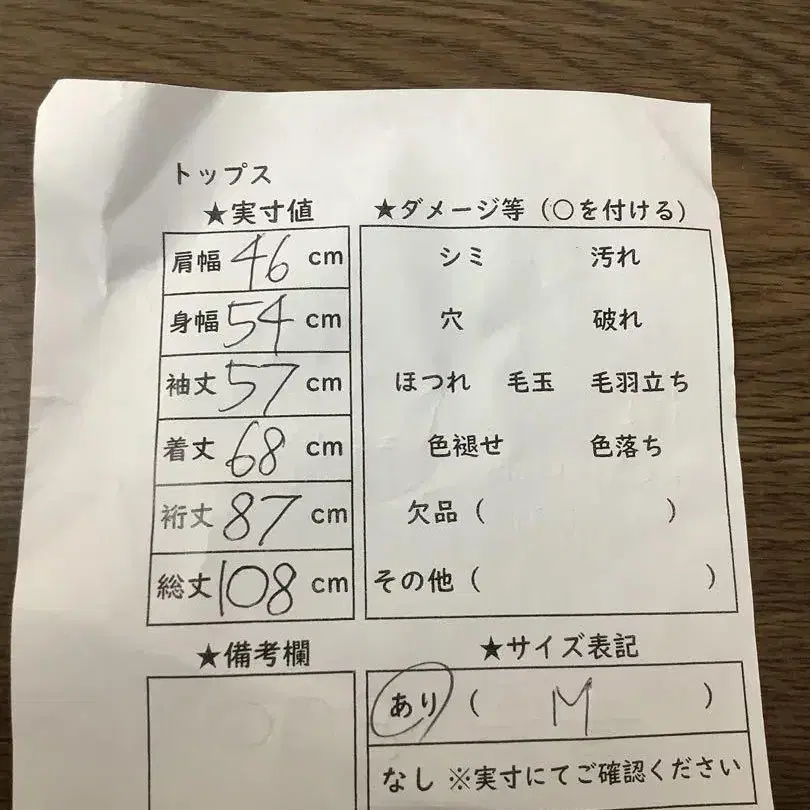 トップス
★実寸値
肩幅 46 cm
身幅 54 cm
袖丈 57 cm
着丈 68 cm
裄丈 87 cm
総丈 108 cm
★ダメージ等（○を付ける）
シミ 汚れ
穴 破れ
ほつれ 毛玉 毛羽立ち
色褪せ 色落ち
欠品（ ）
その他（ ）
★備考欄
★サイズ表記
あり（ M ）
なし ※実寸にてご確認ください